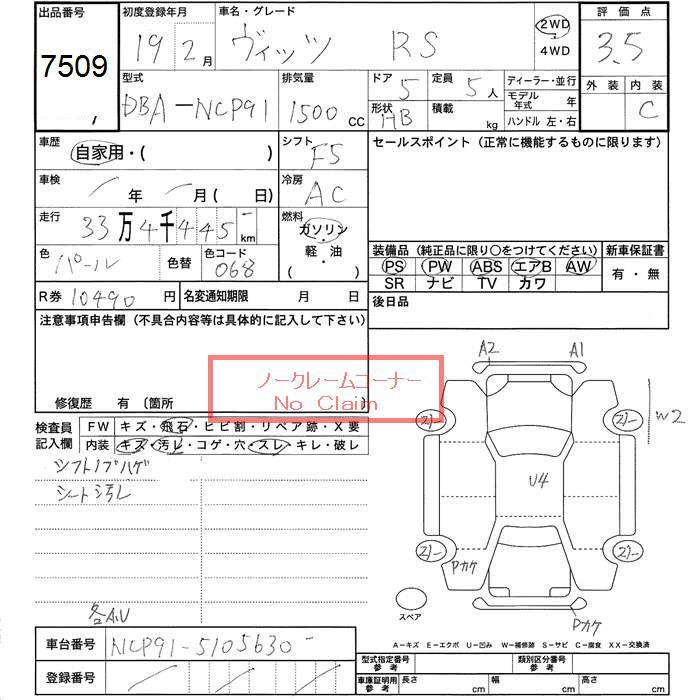 出品番号 初度登録年月 車名・グレード 評価点
7509 19 2月 ヴィッツ RS 2WD・4WD 3.5
型式 排気量 ドア 定員 ディーラー・並行 外装 内装
DBA-NCP91 1500CC 5 5人 モデル年式 年 C
形状 HB 積載 kg ハンドル 左・右
車歴 シフト セールスポイント (正常に機能するものに限ります)
自家用・( ) F5
車検 年 月( 日) 冷房 AC
走行 33万4千445km 燃料 ガソリン・軽・油 ( )
色 パール 色替 色コード 068
装備品(純正品に限り○をつけてください) 新車保証書
PS PW ABS エアB AW 有・無
SR ナビ TV カワ
R券 10490円 名変通知期限 月 日 後日品
注意事項申告欄(不具合内容等は具体的に記入して下さい)
ノークレームコーナー
No Claim
修復歴 有 〔箇所 〕
検査員記入欄 FW キズ・飛石・ヒビ割・リペア跡・X要
内装 キズ・汚レ・コゲ・穴・スレ・キレ・破レ
シフトノブハゲ
シート汚レ
各A.U
A2 A1
W2
U4
Pカケ
スペア
Pカケ
A-キズ E-エクボ U-凹み W-補修跡 S-サビ C-腐食 XX-交換済
車台番号 NCP91-5105630
登録番号
型式指定番号参考 類別区分番号参考
車庫証明用参考 長さ cm 幅 cm 高さ cm